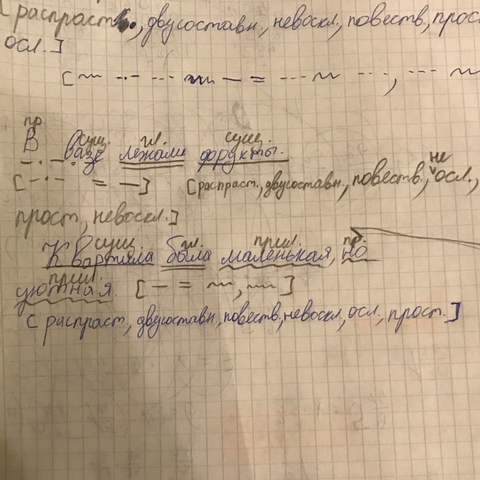 [распраст., двусоставн, невоскл, повеств, прос
осл.]
пр. сущ. гл. сущ.
В вазе лежали фрукты.
[распраст., двусоставн, повеств., не осл.,
прост, невоскл.]
сущ. гл. прил. пр.
Квартила была маленькая, но
прил.
уютная.
[распраст, двусоставн, повеств, невоскл, осл, прост.]